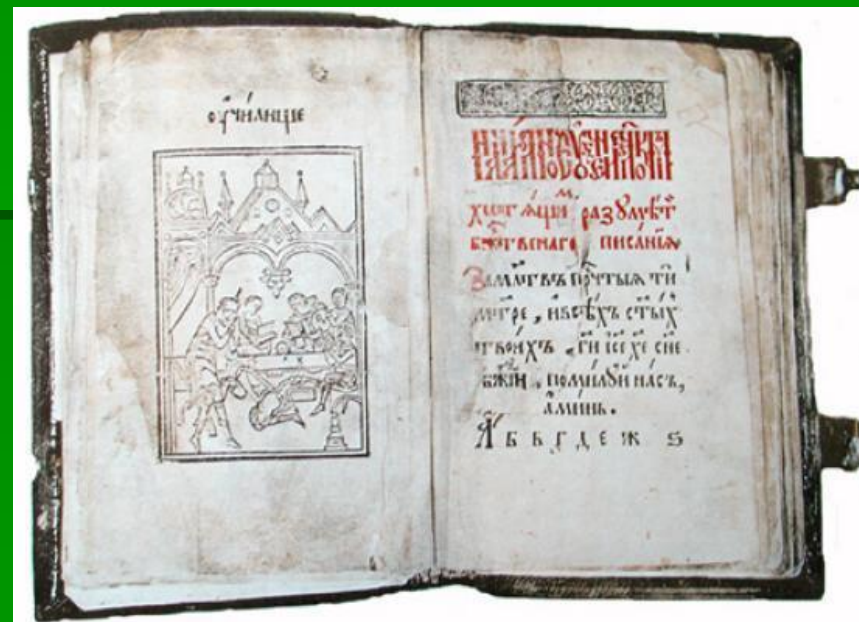 ᲂу҆чи́лище
хотѧ́щиⷨ разꙋмѣ́ти
бжⷭ҇твенаго писа́нїѧ
За мл҃твъ прⷱ҇тыѧ ти
мт҃ре , и҆всѣ́хъ ст҃ы́хъ
твои́хъ , гй҃ і҆с҃е хе҃ сн҃е
бж҃їи , поми́лꙋй на́съ,
а҆ми́нь .
А҆ б в г д е ж ѕ